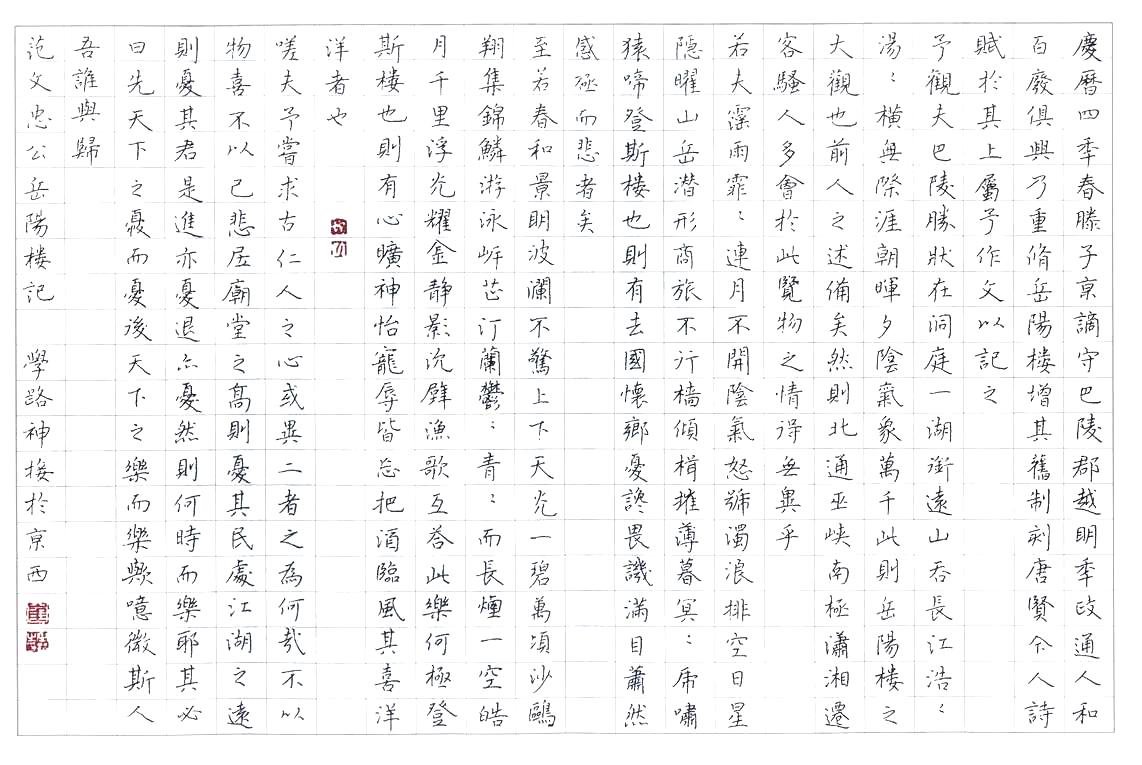 慶曆四秊春滕子京謫守巴陵郡越明秊政通人和
百廢俱興乃重脩岳陽樓增其舊制刻唐賢今人詩
賦於其上屬予作文以記之
予觀夫巴陵勝狀在洞庭一湖銜遠山吞長江浩〻
湯〻橫無際涯朝暉夕陰氣象萬千此則岳陽樓之
大觀也前人之述備矣然則北通巫峽南極瀟湘遷
客騷人多會於此覽物之情得無異乎
若夫霪雨霏〻連月不開陰氣怒號濁浪排空日星
隱曜山岳潛形商旅不行檣傾楫摧薄暮冥〻虎嘯
猿啼登斯樓也則有去國懷鄉憂讒畏譏滿目蕭然
感極而悲者矣
至若春和景明波瀾不驚上下天光一碧萬頃沙鷗
翔集錦鱗游泳岸芷汀蘭鬱〻青〻而長煙一空皓
月千里浮光耀金靜影沉璧漁歌互答此樂何極登
斯樓也則有心曠神怡寵辱皆忘把酒臨風其喜洋
洋者也
嗟夫予嘗求古仁人之心或異二者之為何哉不以
物喜不以己悲居廟堂之高則憂其民處江湖之遠
則憂其君是進亦憂退亦憂然則何時而樂耶其必
曰先天下之憂而憂後天下之樂而樂歟噫微斯人
吾誰與歸
范文忠公岳陽樓記 學路神接於京西